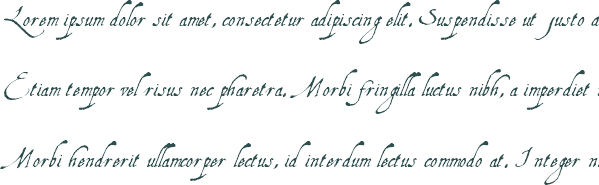 Lorem ipsum dolor sit amet, consectetur adipiscing elit. Suspendisse ut justo a
Etiam tempor vel risus nec pharetra. Morbi fringilla luctus nibh, a imperdiet
Morbi hendrerit ullamcorper lectus, id interdum lectus commodo at. Integer